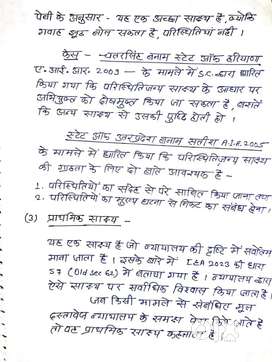 पेनी के अनुसार - यह एक अच्छा साक्ष्य है, क्योंकि
गवाह झूठ बोल सकता है, परिस्थितियाँ नहीं।
केस - चतरसिंह बनाम स्टेट ऑफ हरियाणा
ए.आई.आर. 2009 — के मामले में S.C. द्वारा धारित
किया गया कि परिस्थितिजन्य साक्ष्य के आधार पर
अभियुक्त को दोषमुक्त किया जा सकता है, बशर्ते
कि अन्य साक्ष्य से उसकी पुष्टि होती हो।
स्टेट ऑफ उत्तरप्रदेश बनाम सतीश A.I.R. 2005
के मामले में धारित किया कि परिस्थितिजन्य साक्ष्य
की ग्राह्यता के लिए दो बातें आवश्यक है -
1. परिस्थितियों का संदेह से परे साबित किया जाना तथा
2. परिस्थितियों का मुख्य घटना से निकट का संबंध होना।
(3) प्राथमिक साक्ष्य -
यह एक साक्ष्य है जो न्यायालय की दृष्टि में सर्वोत्तम
माना जाता है। इसके बारे में IEA 2023 की धारा
57 (Old sec 62) में बताया गया है। न्यायालय द्वारा
ऐसे साक्ष्य पर सर्वाधिक विश्वास किया जाता है।
जब किसी मामले से संबंधित मूल
दस्तावेज न्यायालय के समक्ष पेश किये जाते है
तो वह प्राथमिक साक्ष्य कहलाता है।